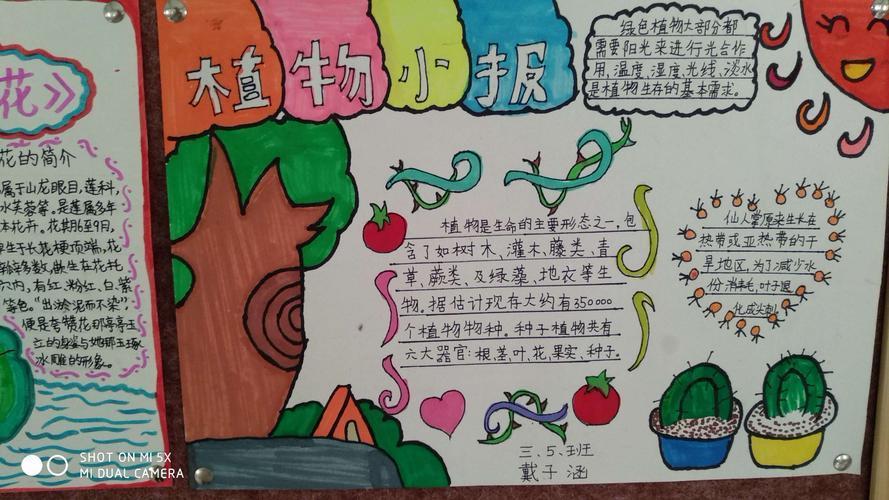 花》
花的简介
属于山龙眼目,莲科,
水芙蓉等。是莲属多年
本花卉。花期6至9月,
单生于长花梗顶端,花
嵌生在花托
穴内,有红、粉红、白、紫
等色。"出淤泥而不染"
便是
立的
冰雕的形象。
植物小报
绿色植物大部分都
需要阳光来进行光合作
用,温度、湿度、光线、淡水
是植物生存的基本需求。
植物是生命的主要形态之一,包
含了如树木、灌木、藤类、青
草、蕨类、及绿藻、地衣等生
物。据估计现存大约有350000
个植物物种。种子植物共有
六大器官:根、茎、叶、花、果实、种子。
仙人掌原来生长在
热带或亚热带的干
旱地区,为了减少水
份消耗,叶子退
化成尖刺
三.5.班
戴子涵
SHOT ON MI 5X
MI DUAL CAMERA